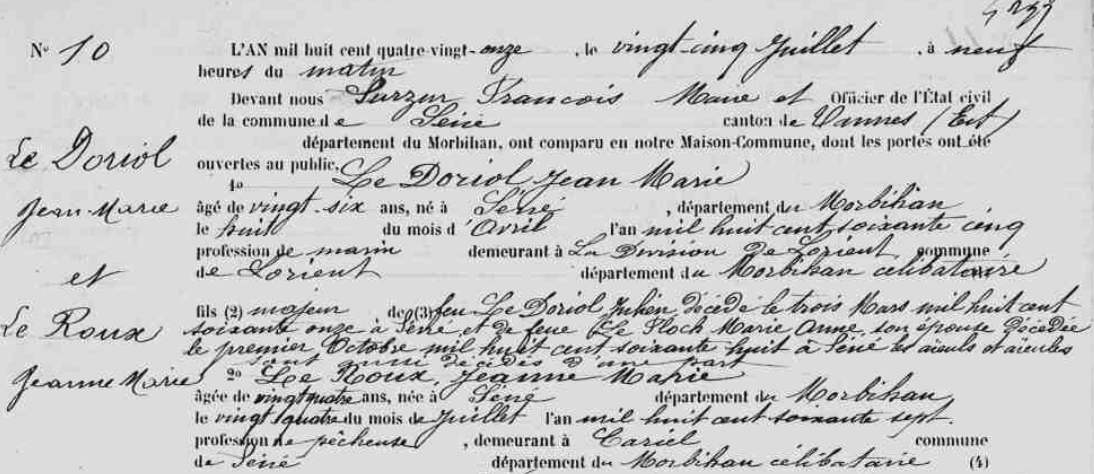 N° 10
L'AN mil huit cent quatre-vingt-onze, le vingt-cinq Juillet, à neuf
heures du matin
Devant nous Surzur Francois Marie et Officier de l'État civil
de la commune de Séné canton de Vannes (Est)
département du Morbihan, ont comparu en notre Maison-Commune, dont les portes ont été
ouvertes au public,
1° Le Doriol Jean Marie
âgé de vingt-six ans, né à Séné, département du Morbihan
le huit du mois d'Avril l'an mil huit cent soixante cinq
profession de marin demeurant à La Division de Lorient commune
de Lorient département du Morbihan célibataire
fils (2) majeur de (3) feu Le Doriol Julien, décédé le trois Mars mil huit cent
soixante onze à Séné et de feue Le Floch Marie Anne, son épouse décédée
le premier Octobre mil huit cent soixante huit à Séné les aïeuls et aïeules
sont aussi décédés d'une part
2° Le Roux, Jeanne Marie
âgée de vingt quatre ans, née à Séné département du Morbihan
le vingt quatre du mois de Juillet l'an mil huit cent soixante sept
profession de pêcheuse, demeurant à Cariel commune
de Séné département du Morbihan célibataire (4)
Le Doriol
Jean-Marie
et
Le Roux
Jeanne Marie